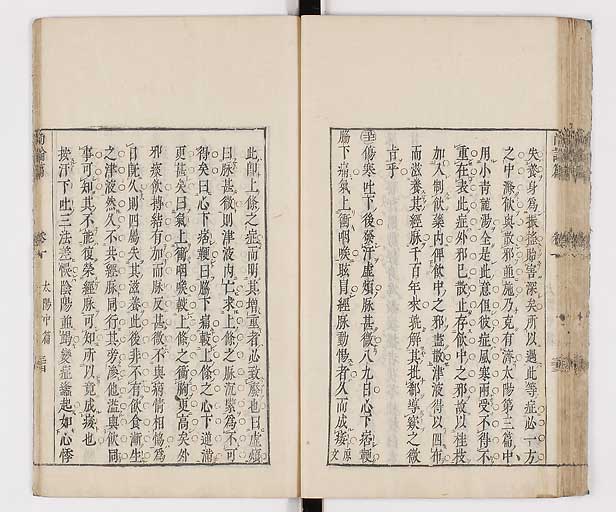 失養身為振搖貽害深矣所以遇此等症必一方
之中滌飲與散邪並施乃克有濟太陽第三篇中
用小青龍湯全是此意但彼症風寒兩受不得不
重在表此症外邪已散止存飲中之邪故以桂枝
加入制飲藥內俾飲中之邪盡散津液得以四布
而滋養其經脈千百年來孰解其批郤導窾之微
旨乎
傷寒吐下後發汗虛煩脈甚微八九日心下痞鞕
脇下痛氣上衝咽喉眩冒經脈動惕者久而成痿原文
此即上條之症而明其增重者必致廢也曰虛煩
曰脈甚微則津液內亡求上條之脈沉緊為不可
得矣曰心下痞鞕曰脇下痛較上條之心下逆滿
更甚矣曰氣上衝咽喉較上條之衝胸更高矣外
邪痰飲搏結有加而脈反甚微不與病情相協為
日既久則四屬失其滋養此後非不有飲食漸生
之津液然久不共經脈同行其旁滲他溢與飲同
事可知其不能復榮經脈可知所以竟成痿也
按汗下吐三法差悞陰陽煎竭變症蠭起如心悸
尚論篇 卷一 太陽中篇